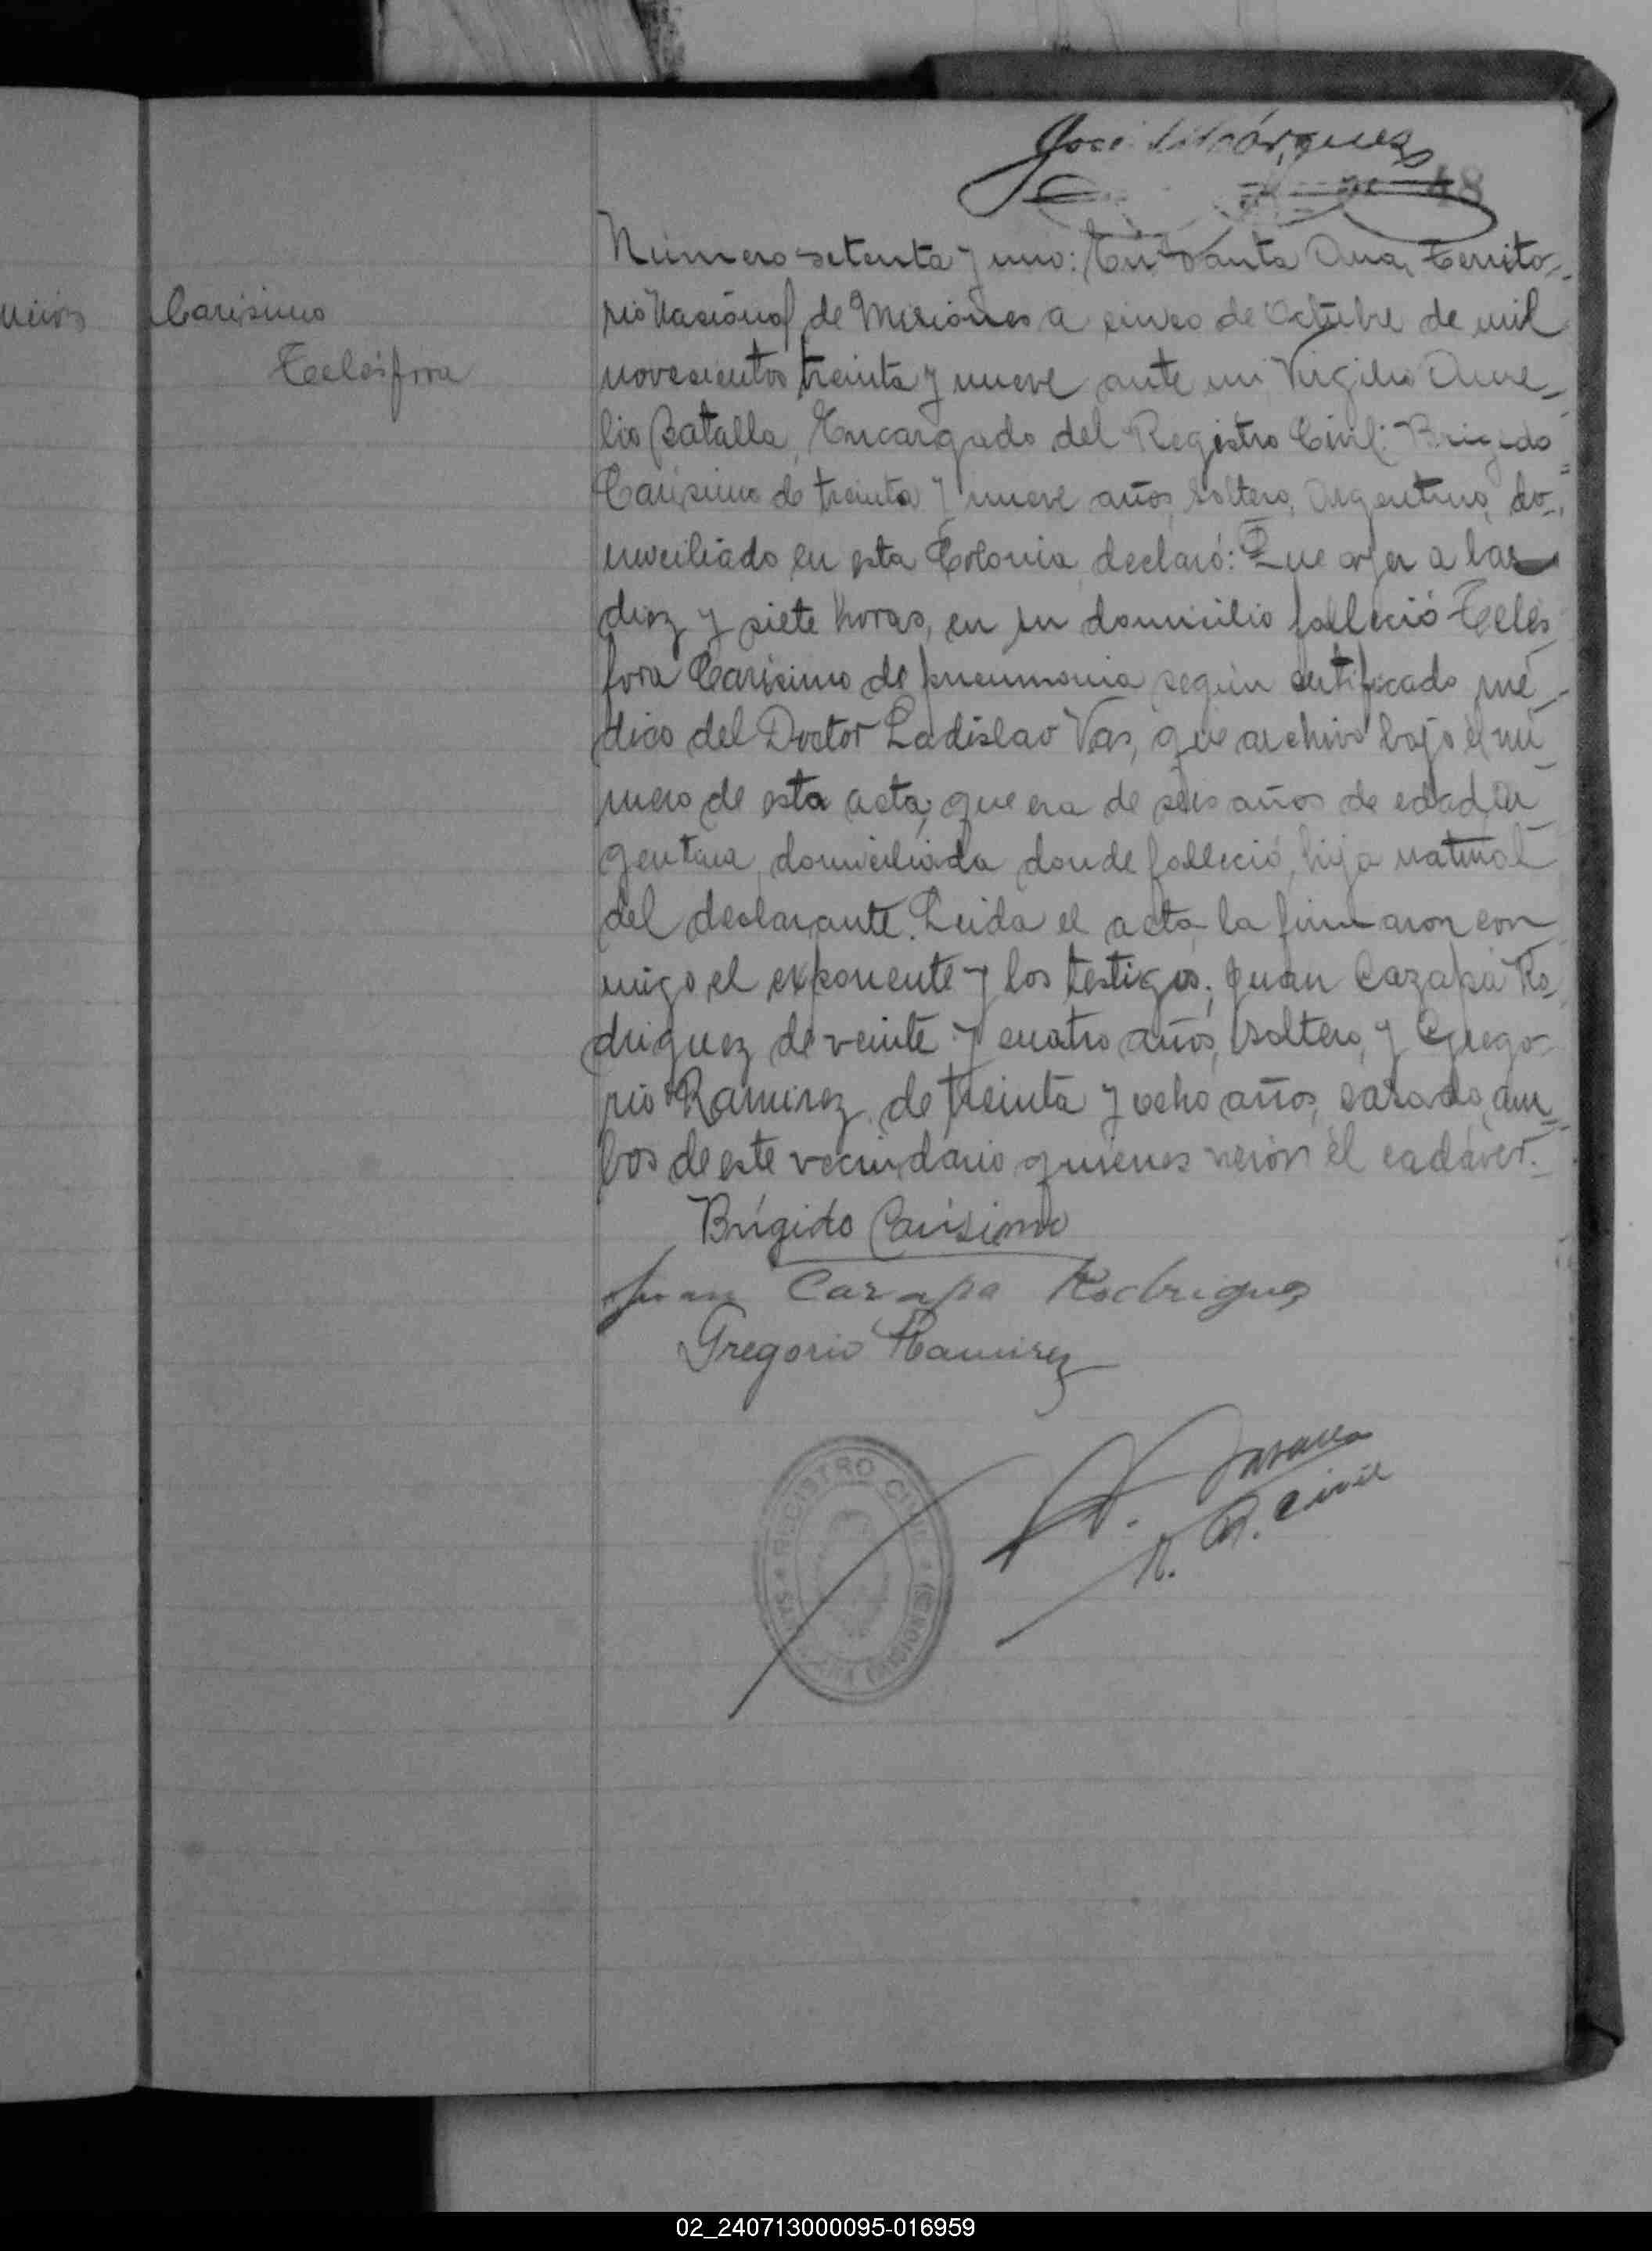 José Márquez
48
ución
Carísimo
Telésfora
Número setenta y uno: En Santa Ana, Territo-
rio Nacional de Misiones a cinco de Octubre de mil
novecientos treinta y nueve ante mi Virgilio Aure-
lio Batalla, Encargado del Registro Civil: Brigido
Carísimo de treinta y nueve años, soltero, Argentino, do-
miciliado en esta Colonia, declaró: Que ayer a las
diez y siete horas, en su domicilio falleció Telés
fora Carísimo de pneumonia según certificado mé-
dico del Doctor Ladislao Vas, que archivo bajo el nú
mero de esta acta; que era de seis años de edad, ar
gentina, domiciliada donde falleció, hija natural
del declarante. Leida el acta la firmaron con
migo el exponente y los testigos; Juan Cazapá Ro
driguez de veinte y cuatro años, soltero, y Grego-
rio Ramirez de treinta y ocho años, casado, am
bos de este vecindario quienes vieron el cadáver.
Brígido Carísimo
Juan Cazapa Rodriguez
Gregorio Ramirez
R. Civil
REGISTRO CIVIL
SANTA ANA (MISIONES)
02_240713000095-016959